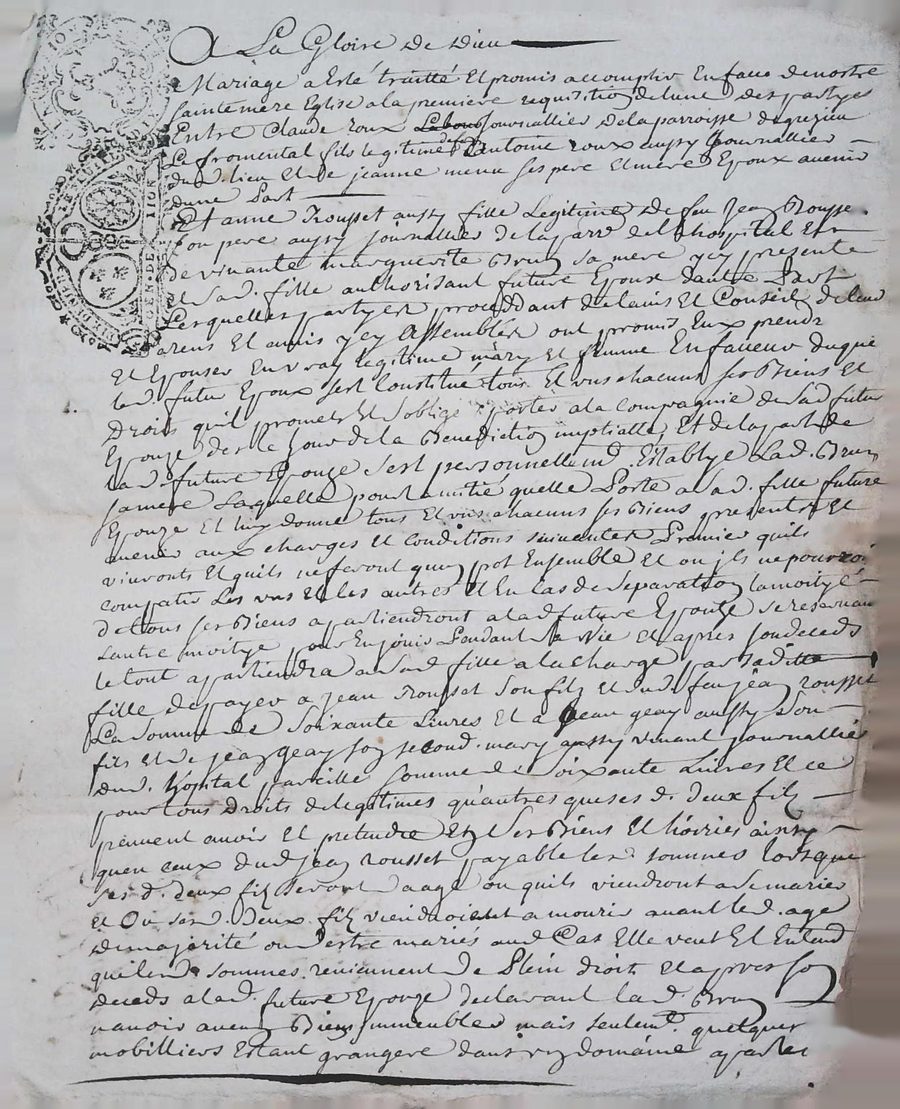 A La Gloire de Dieu
Mariage a Esté traitté Et promis accomplir En face de nostre
sainte mere Eglise a la premiere requisition de lune des partyes
Entre Claude roux journallier de la parroisse de grezieu
Le fromental fils legitime dantoine roux aussy journallier
dud. lieu Et de jeanne menu ses pere Et mere Epoux avenir
dune Part
Et anne Rousset aussy fille Legitime de feu Jean Rousse
son pere aussy journallier de la parr. de lhospital Et
de vivante marguerite Brun sa mere ycy presente
et sad. fille authorisant future Epouse dautre Part
Lesquelles partyes proceddant de lavis Et Conseil de leur
arens Et amis ycy Assemblés ont promis Eux prendr
Et Epouser En vray legitime mary Et femme En faveur duque
led. futur Epoux sest Constitué tous Et uns chacuns ses Biens Et
Droits quil promet Et soblige porter a la compagnie de sad futur
Epouze des le jour de la Benediction nuptialle, Et de la part de
lad. future Epouze sest personnellemt. Establye Lad. Brun
sa mere Laquelle pour lamitié quelle Porte a sad. fille future
Epouze Et luy donne tous Et uns chacuns ses Biens presents Et
avenir aux charges Et conditions suivantes Premier quils
vivront Et quils ne feront quun pot Ensemble Et ou ils ne pourroi
compatir Les uns Et les autres Et En cas de separation la moitye
de tous ses Biens apartiendront a lad future Epouze se reservan
lautre moitye pour En jouir Pendant sa vie Et apres son deceds
le tout apartiendra a sad fille a la charge par saditte
fille de payer a jean Rousset son fils et dud. feu jean rousset
La somme de soixante Livres Et a jean geay aussy son
fils et de jean geay son second mary aussy vivant journallier
dud. hopital pareille somme de soixante Livres Et ce
pour tous droits de legitimes quautres que ses d. deux fils
peuvent avoir Et pretendre En ses Biens Et hoiries ainsy
quen ceux dud jean rousset payable les. sommes lorsque
ses d. deux fils seront daage ou quils viendront a se marier
et Ou ses d. deux fils viendroient a mourir avant led. age
de majorité ou destre mariés aud Cas Elle veut Et Entend
que led. sommes reviennent de Plein droit Et apres son
deceds a lad. future Epouze declarant lad. Brun
navoir aucun Biens immeubles mais seulemt. quelques
mobilliers Estant grangere dans un domaine apartes